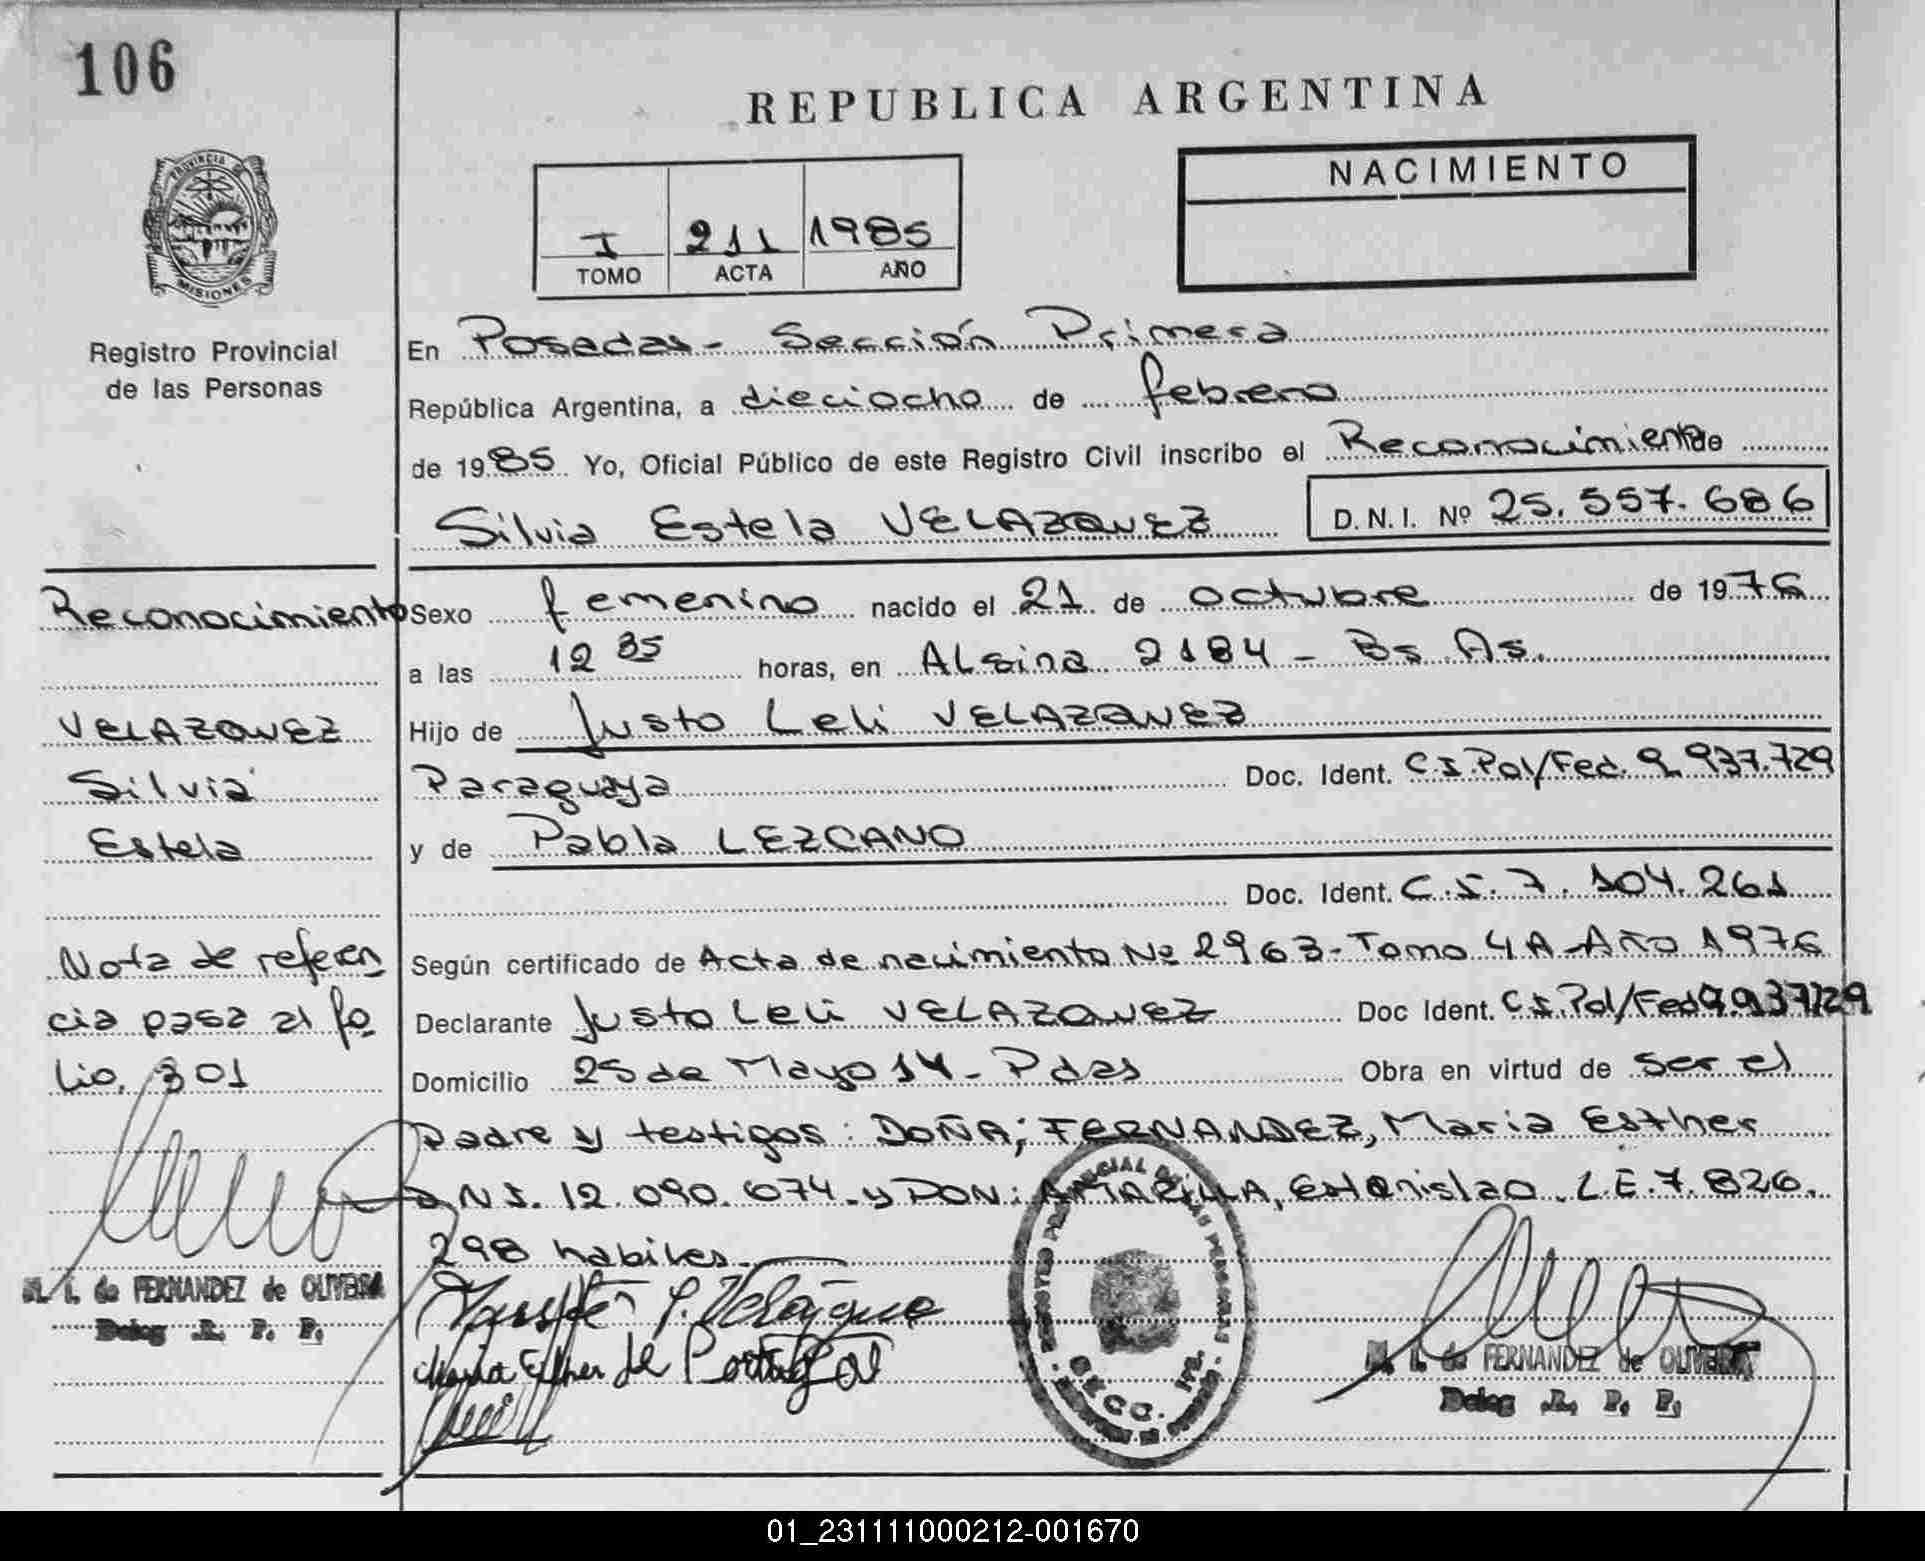 106
REPUBLICA ARGENTINA
PROVINCIA
MISIONES
Registro Provincial
de las Personas
I 211 1985
TOMO ACTA AÑO
NACIMIENTO
En Posadas - Sección Primera
República Argentina, a dieciocho de febrero
de 1985 Yo, Oficial Público de este Registro Civil inscribo el Reconocimiento de
Silvia Estela VELAZQUEZ D.N.I. Nº 25.557.686
Reconocimiento
VELAZQUEZ
Silvia
Estela
Nota de referen
cia pasa al fo
lio, 301
M. I. de FERNANDEZ de OLIVEIRA
Deleg. R. P. P.
Sexo femenino nacido el 21 de octubre de 1976
a las 12 35 horas, en ALsina 2184 - Bs. As.
Hijo de Justo Leli VELAZQUEZ
Paraguaya Doc. Ident. C.I.Pol/Fed. 9.937.729
y de Pabla LEZCANO
Doc. Ident. C.I. 7.104.261
Según certificado de Acta de nacimiento Nº 2963 - Tomo 4A - Año 1976
Declarante Justo Leli VELAZQUEZ Doc Ident. C.I.Pol/Fed 9.937729
Domicilio 25 de Mayo 14 - Pdas Obra en virtud de ser el
Padre y testigos: DOÑA; FERNANDEZ, Maria Esther
DNI. 12.090.074. y DON: AMARILLA, Estanislao. L.E. 7.826.
298 habiles.
Maria Esther de Portugal
SECC. 1ra.
M. I. de FERNANDEZ de OLIVEIRA
Deleg. R. P. P.
01_231111000212-001670